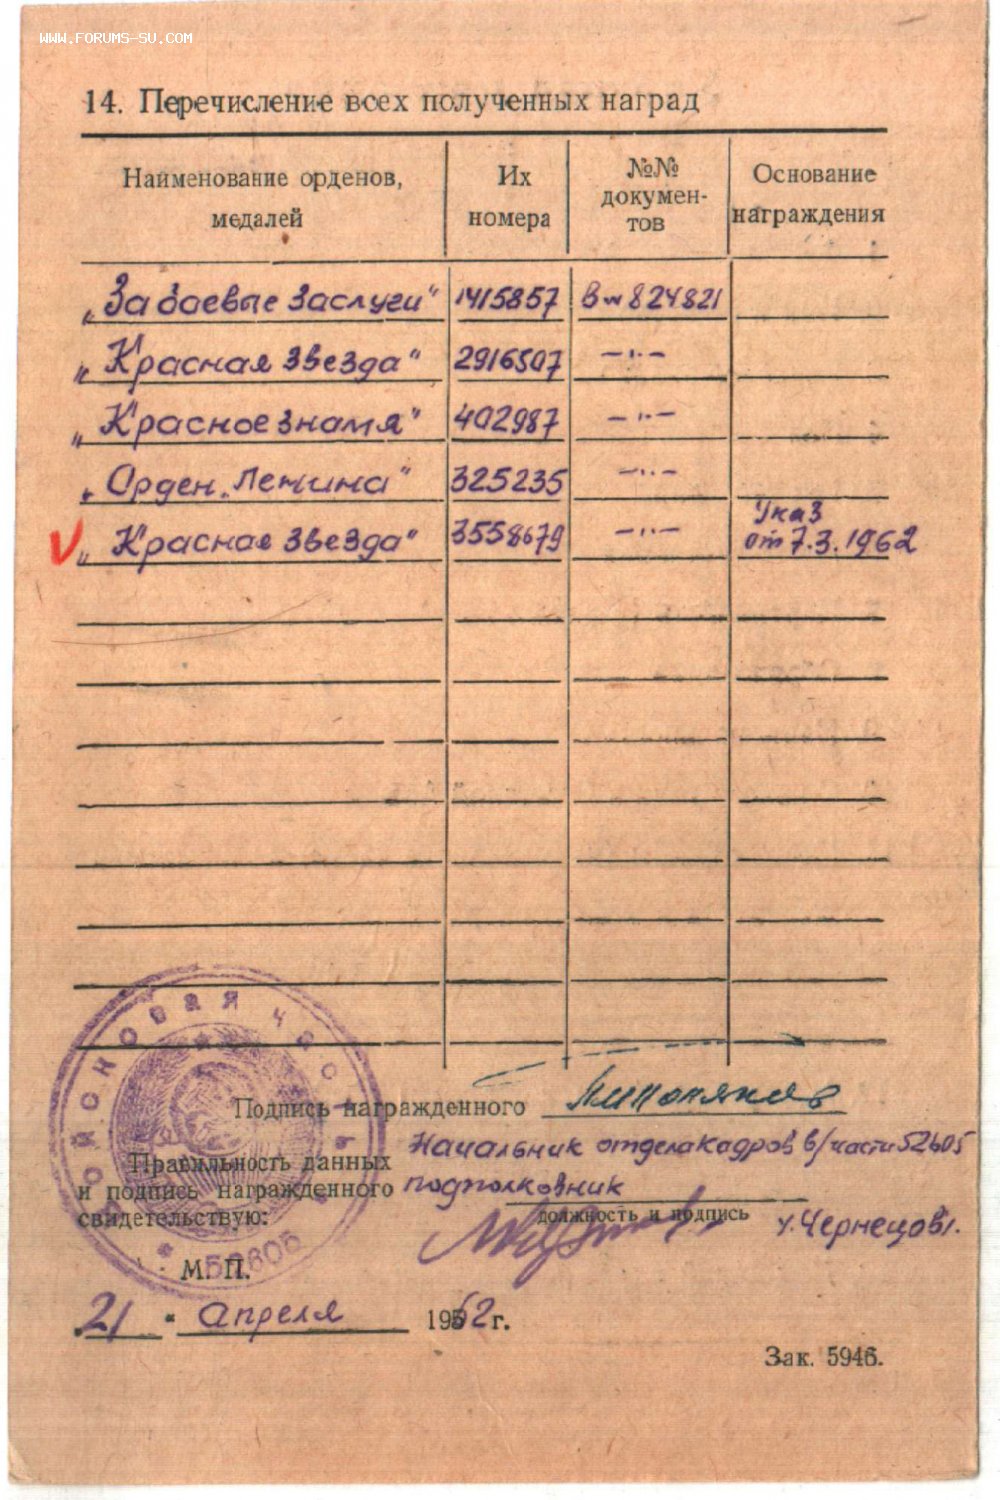 WWW.FORUMS-SU.COM
14. Перечисление всех полученных наград
Наименование орденов, медалей
Их номера
№№ докумен-тов
Основание награждения
„За боевые заслуги“ 1415857 В№824821
„Красная звезда“ 2916507 —„—
„Красное знамя“ 402987 —„—
„Орден Ленина“ 325235 —„—
„Красная звезда“ 3558679 —„— Указ от 7.3.1962
ВОЙСКОВАЯ ЧАСТЬ
52605
Подпись награжденного
Начальник отдела кадров в/части 52605
Правильность данных
и подпись награжденного подполковник
свидетельствую:
должность и подпись
/.Чернецов/.
М. П.
21 “ апреля 1962 г.
Зак. 5946.